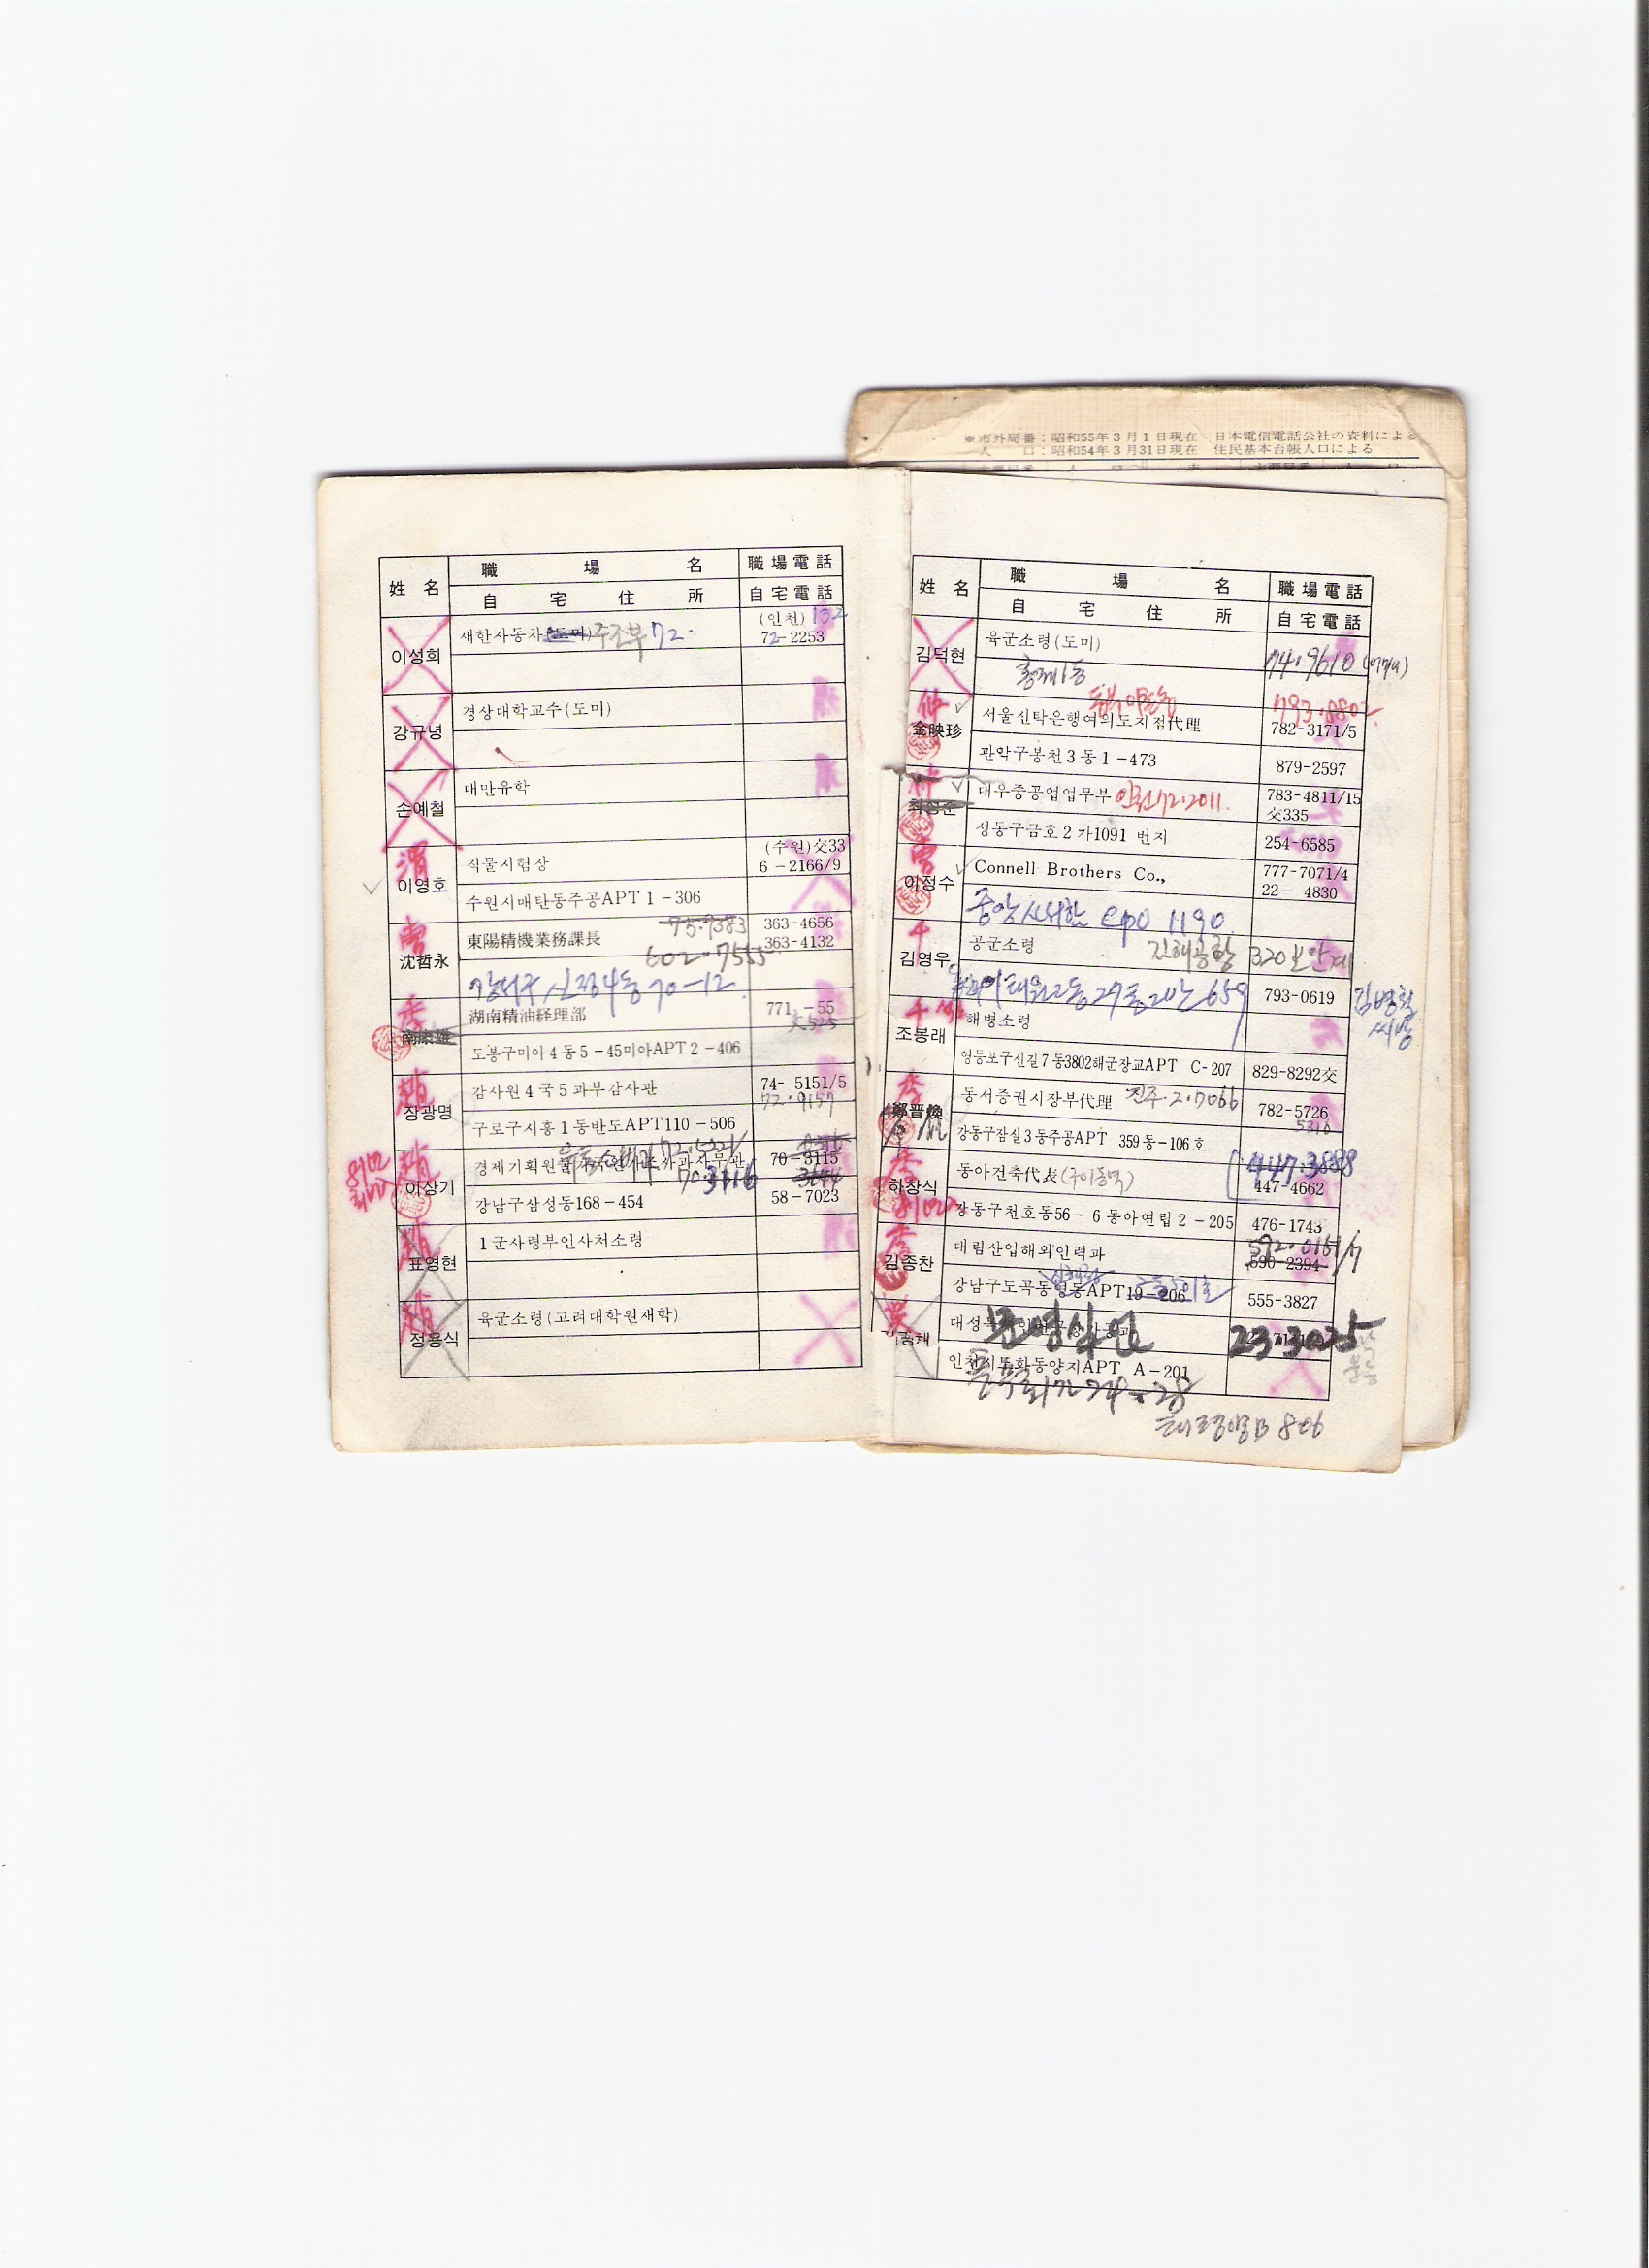 ※市外局番：昭和55年3月1日現在 日本電信電話公社の資料による
人 口：昭和54年3月31日現在 住民基本台帳人口による
姓 名 職 場 名 職場電話
自 宅 住 所 自宅電話
이성희 새한자동차(도미) 주조부 72. (인천) 132
72-2253
강규녕 경상대학교수(도미)
손예철 대만유학
이영호 식물시험장 (수원)交33
6-2166/9
수원시매탄동주공APT 1-306
75.9383
沈哲永 東陽精機業務課長 363-4656
363-4132
602.7555
강서구 신정4동 70-12
南康雄 湖南精油経理部 771 -55
交525
도봉구미아4동5-45미아APT 2-406
장광명 감사원4국5과부감사관 74- 5151/5
72.9157
구로구시흥1동반도APT110-506
8102
이상기 경제기획원 70-3115
70.3116 3644
강남구삼성동168-454 58-7023
표영현 1군사령부인사처소령
정용식 육군소령(고려대학원재학)
姓 名 職 場 名 職場電話
自 宅 住 所 自宅電話
김덕현 육군소령(도미)
홍제1동 74.9610
783.0802
金映珍 서울신탁은행여의도지점代理 782-3171/5
관악구봉천3동1-473 879-2597
최영준 대우중공업업무부 인천72.2011. 783-4811/15
交335
성동구금호2가1091 번지 254-6585
이정수 Connell Brothers Co., 777-7071/4
22- 4830
중앙사서함 CPO 1190
김영우 공군소령 김해공항 320보안계
이태원2동 659 793-0619
조봉래 해병소령
영등포구신길7동3802해군장교APT C-207 829-8292交
鄭晋煥 동서증권시장부代理 진주.2.7066 782-5726
5316
강동구잠실3동주공APT 359동-106호
하창식 동아건축代表 447.3888
447-4662
강동구천호동56-6동아연립2-205 476-1743
김종찬 대림산업해외인력과 592.0161/7
590-2394
강남구도곡동영동APT19-206 555-3827
대성
23.3025
인천시 동양지APT A-201
806